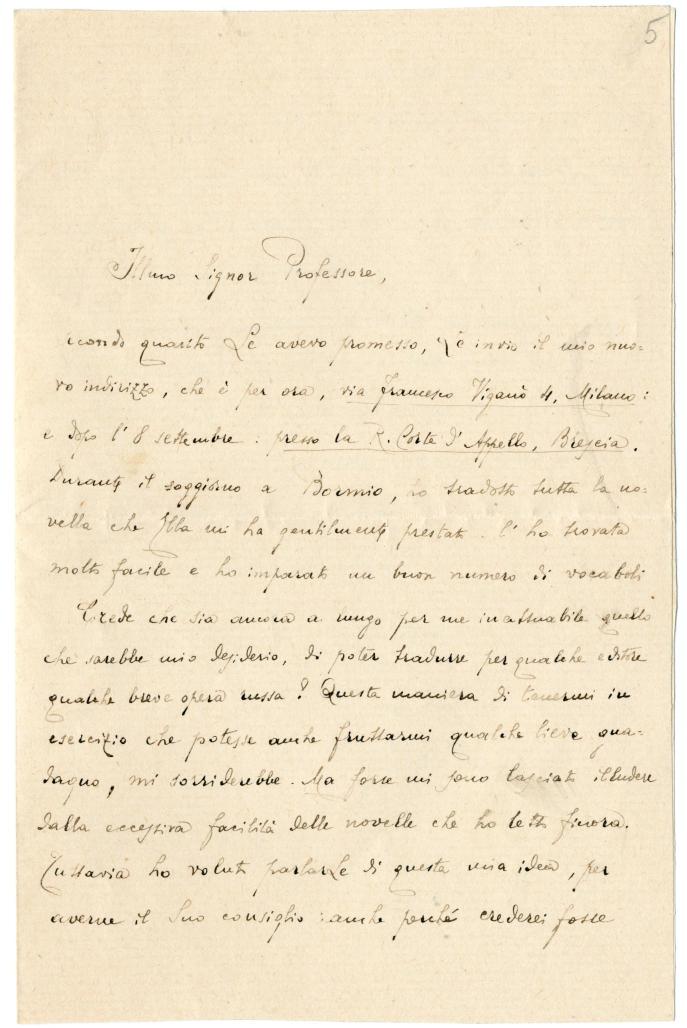 5
Illmo Signor Professore,
econdo quanto Le avevo promesso, Le invio il mio nuo-
vo indirizzo, che è per ora, via Francesco Viganò 4, Milano:
e dopo l'8 settembre: presso la R. Corte d'Appello, Brescia.
Durante il soggiorno a Bormio, ho tradotto tutta la no-
vella che Ella mi ha gentilmente prestato. l'ho trovata
molto facile e ho imparato un buon numero di vocaboli
Crede che sia ancora a lungo per me inattuabile quello
che sarebbe mio desiderio, di poter tradurre per qualche editore
qualche breve opera russa? Questa maniera di tenermi in
esercizio che potesse anche fruttarmi qualche lieve gua-
dagno, mi sorriderebbe. Ma forse mi sono lasciato illudere
dalla eccessiva facilità delle novelle che ho letto finora.
Tuttavia ho voluto parlarLe di questa mia idea, per
averne il Suo consiglio: anche perché crederei fosse